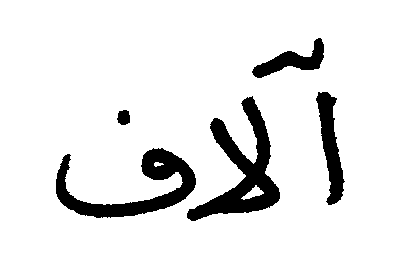 آلاف